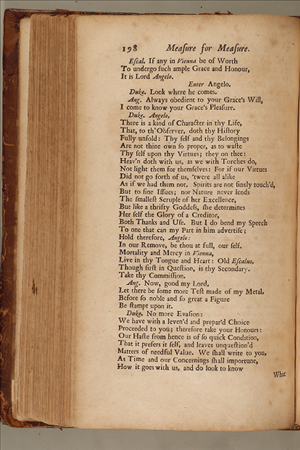 198 Measure for Measure.
Escal. If any in Vienna be of Worth
To undergo such ample Grace and Honour,
It is Lord Angelo.
Enter Angelo.
Duke. Look where he comes.
Ang. Always obedient to your Grace's Will,
I come to know your Grace's Pleasure.
Duke. Angelo,
There is a kind of Character in thy Life,
That, to th' Observer, doth thy History
Fully unfold: Thy self and thy Belongings
Are not thine own so proper, as to waste
Thy self upon thy Virtues; they on thee:
Heav'n doth with us, as we with Torches do,
Not light them for themselves: For if our Virtues
Did not go forth of us, 'twere all alike
As if we had them not. Spirits are not finely touch'd,
But to fine Issues; nor Nature never lends
The smallest Scruple of her Excellence,
But like a thrifty Goddess, she determines
Her self the Glory of a Creditor,
Both Thanks and Use. But I do bend my Speech
To one that can my Part in him advertise;
Hold therefore, Angelo:
In our Remove, be thou at full, our self.
Mortality and Mercy in Vienna,
Live in thy Tongue and Heart: Old Escalus,
Though first in Question, is thy Secondary.
Take thy Commission.
Ang. Now, good my Lord,
Let there be some more Test made of my Metal,
Before so noble and so great a Figure
Be stampt upon it.
Duke. No more Evasion:
We have with a leven'd and prepar'd Choice
Proceeded to you; therefore take your Honours:
Our Haste from hence is of so quick Condition,
That it prefers it self, and leaves unquestion'd
Matters of needful Value. We shall write to you,
As Time and our Concernings shall importune,
How it goes with us, and do look to know
What